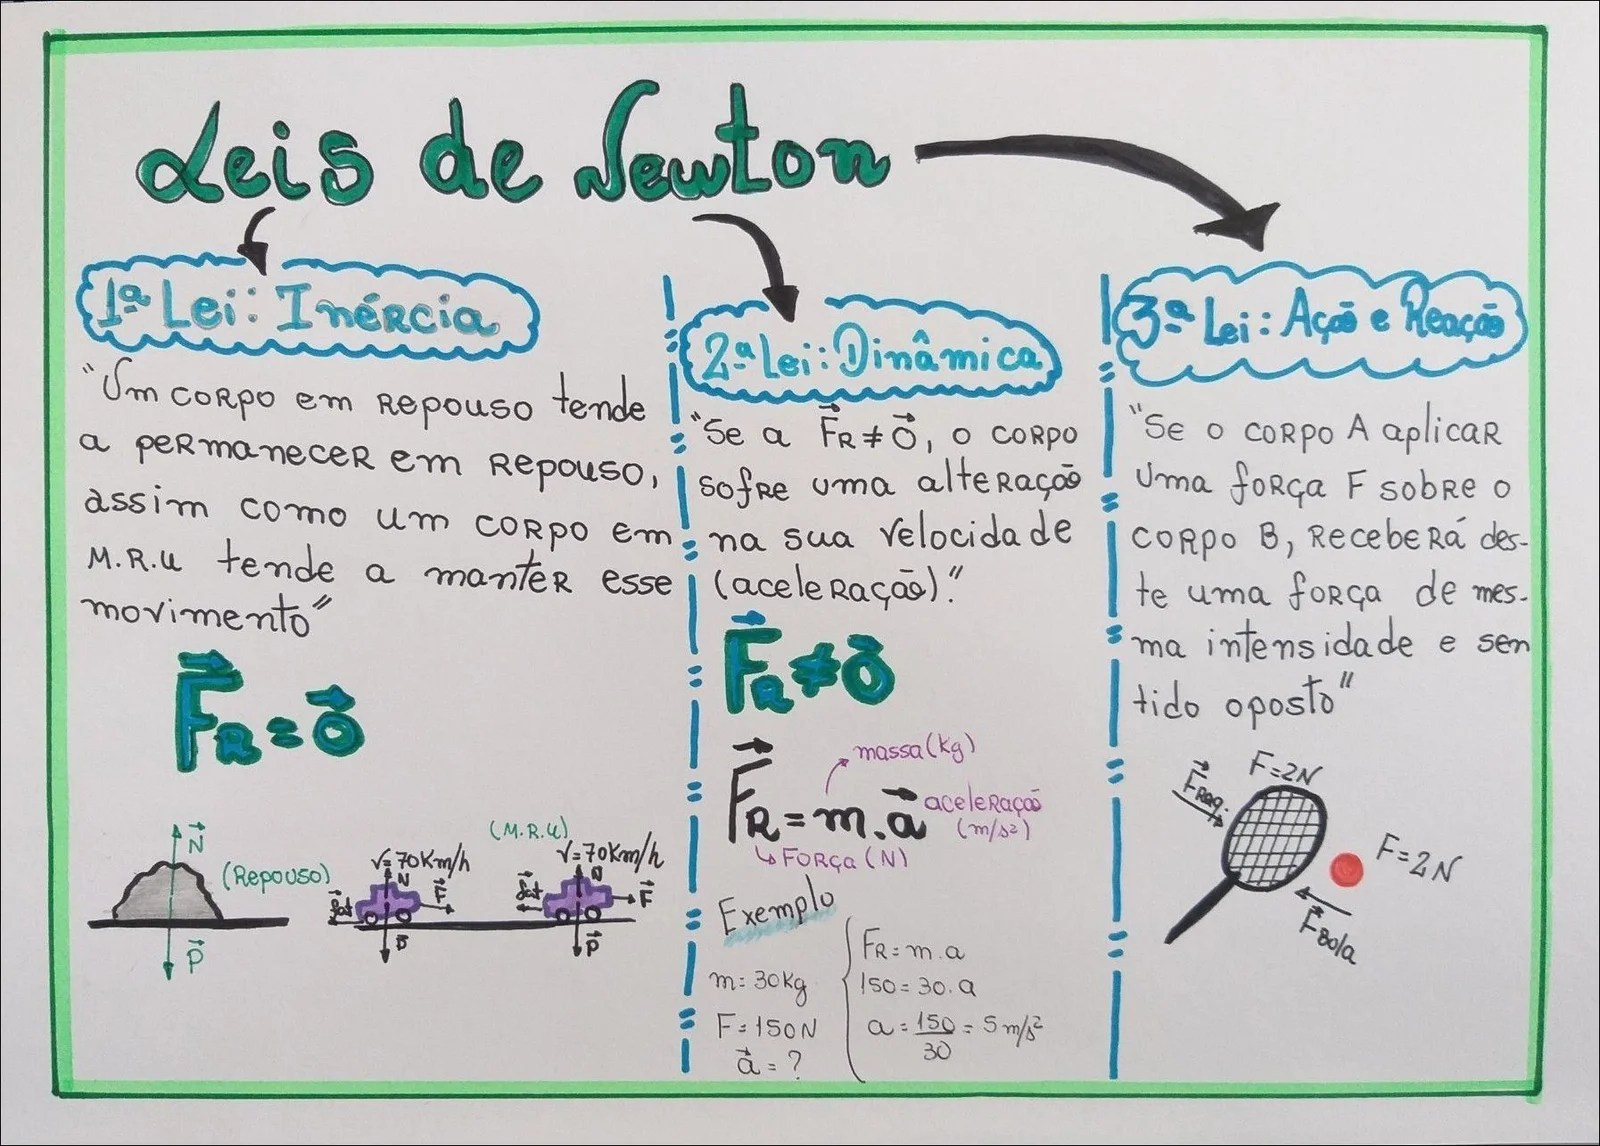 Leis de Newton
1ª Lei: Inércia
"Um corpo em repouso tende
a permanecer em repouso,
assim como um corpo em
M.R.U tende a manter esse
movimento"
F⃗R = 0⃗
N⃗
(Repouso)
P⃗
(M.R.U)
V=70Km/h
N
F⃗
f⃗at
P⃗
V=70Km/h
N
F⃗
f⃗at
P⃗
2ª Lei: Dinâmica
"Se a F⃗R ≠ 0⃗, o corpo
sofre uma alteração
na sua velocidade
(aceleração)."
F⃗R ≠ 0⃗
massa (kg)
F⃗R = m.a⃗
aceleração
(m/s²)
Força (N)
Exemplo
m = 30kg
F = 150N
a⃗ = ?
FR = m.a
150 = 30.a
a = 150/30 = 5 m/s²
3ª Lei: Ação e Reação
"Se o corpo A aplicar
uma força F sobre o
corpo B, receberá des-
te uma força de mes-
ma intensidade e sen
tido oposto"
F=2N
F⃗Raq.
F=2N
F⃗Bola